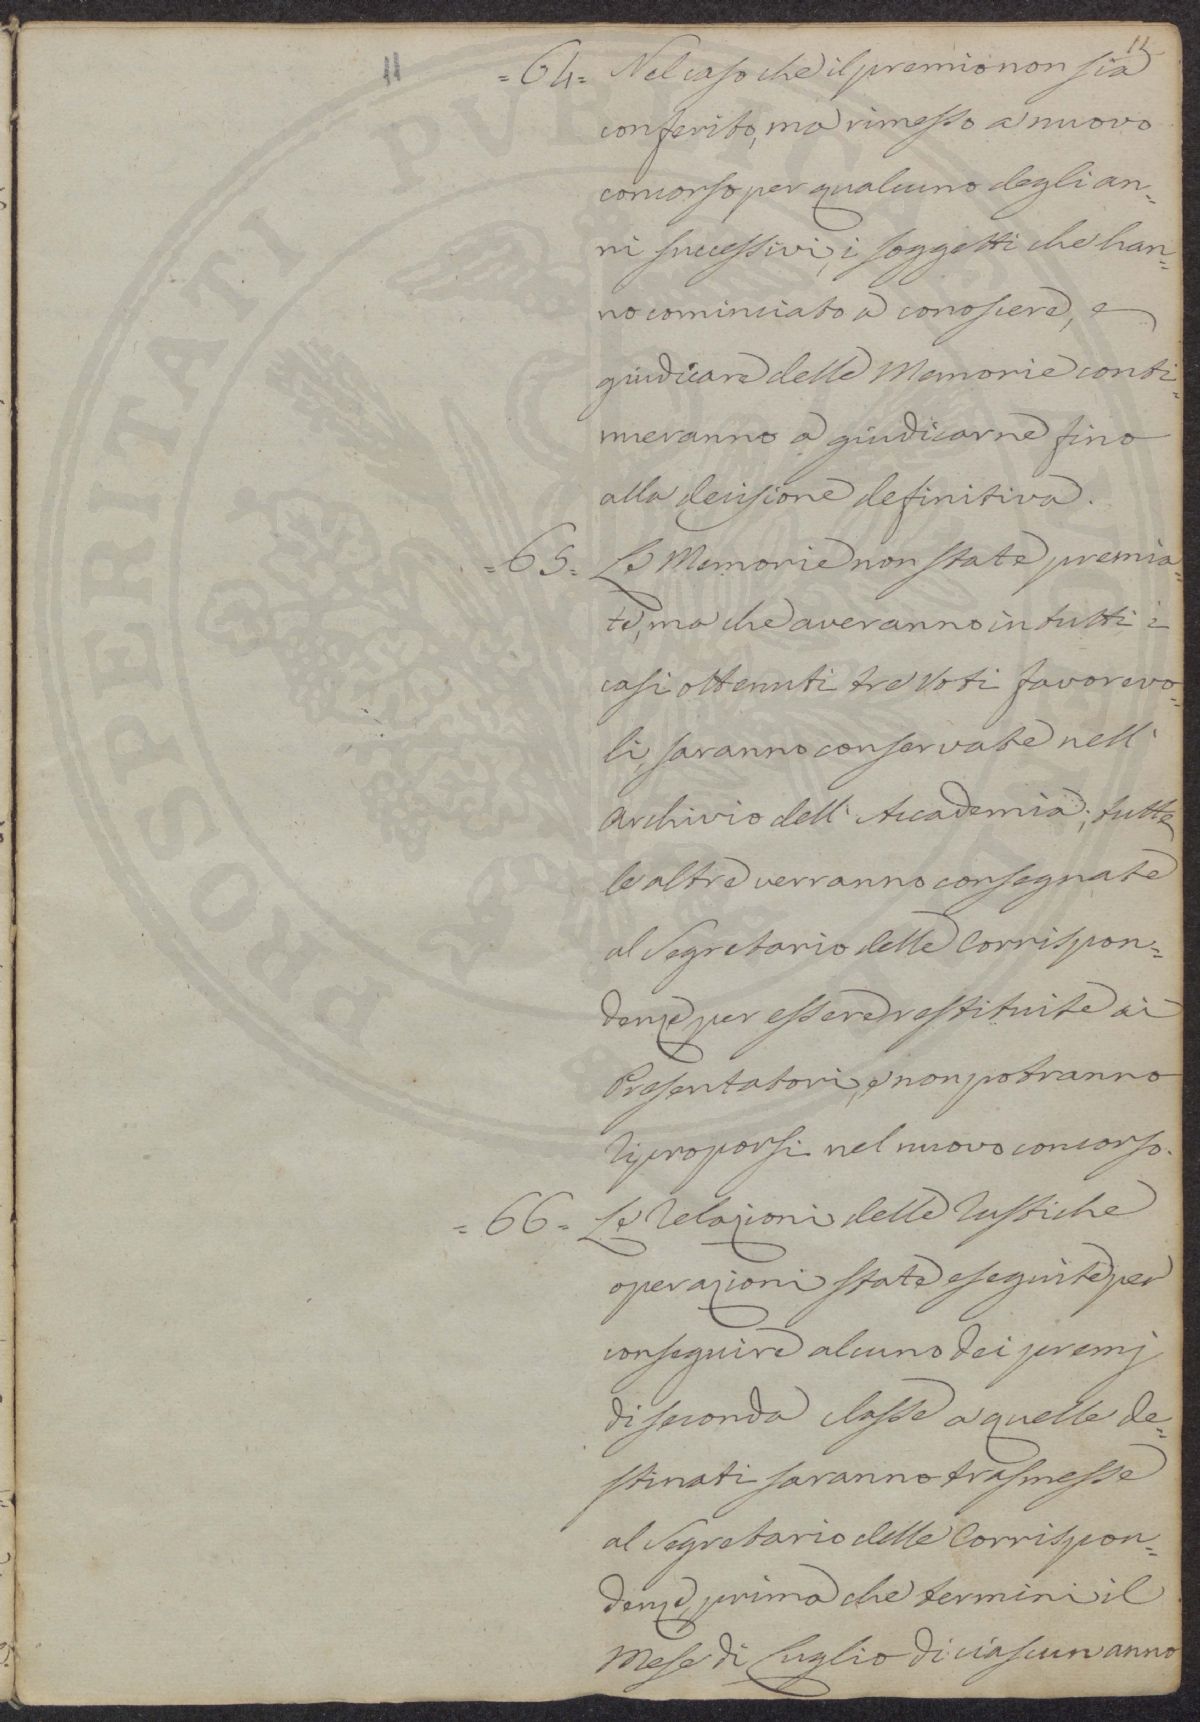 11
11
=64= Nel caso che il premio non sia
conferito, ma rimesso a nuovo
concorso per qualcuno degli an=
ni successivi, i soggetti che han=
no cominciato a conoscere, e
giudicare delle Memorie conti=
nueranno a giudicarne fino
alla decisione definitiva.
=65= Le Memorie non state premia=
te, ma che averanno in tutti i
casi ottenuti tre Voti favorevo=
li, saranno conservate nell'
Archivio dell'Accademia; tutte
le altre verranno consegnate
al Segretario delle Corrispon=
denze per essere restituite ai
Presentatori, e non potranno
riproporsi nel nuovo concorso.
=66= Le relazioni delle rustiche
operazioni state eseguite per
conseguire alcuno dei premj
di seconda classe a quelle de=
stinati saranno trasmesse
al Segretario delle Corrispon=
denze, prima che termini il
Mese di Luglio di ciascun anno
PROSPERITATI PUBLICAE